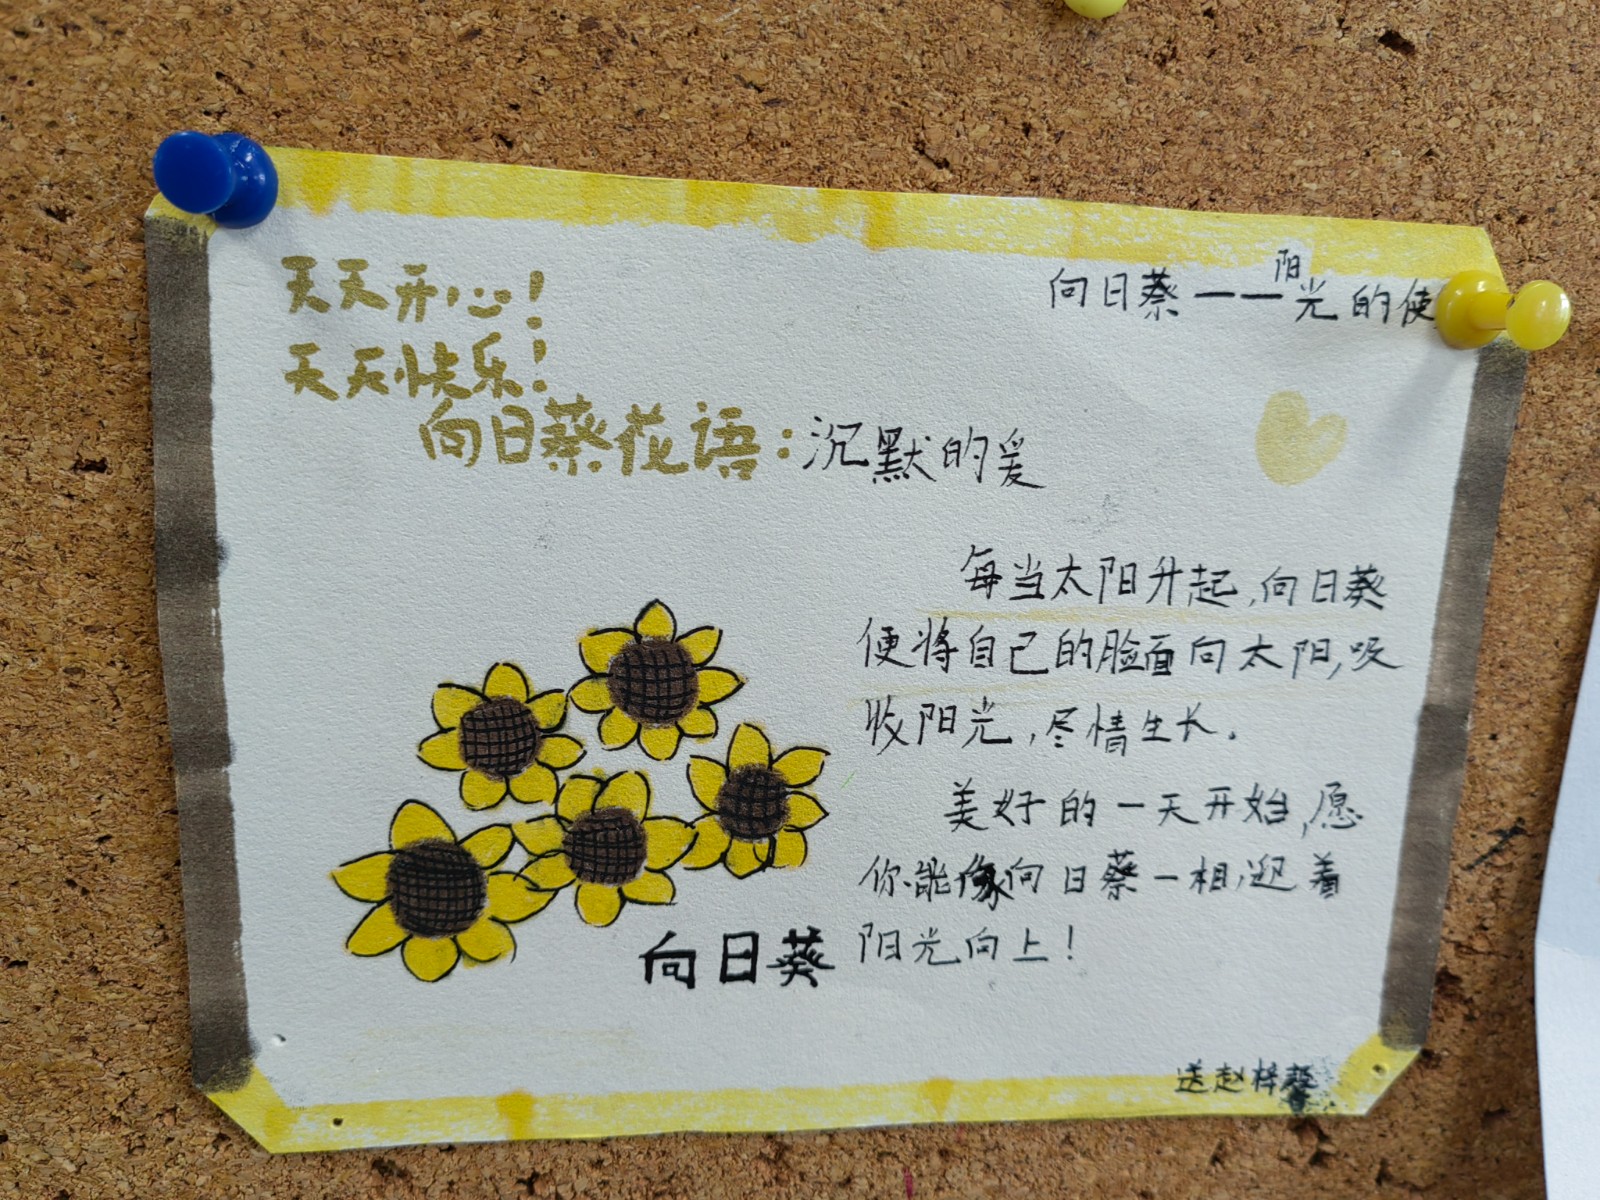 天天开心!
天天快乐!
向日葵——阳光的使
向日葵花语:沉默的爱
每当太阳升起,向日葵
便将自己的脸面向太阳,吸
收阳光,尽情生长。
美好的一天开始,愿
你能像向日葵一相,迎着
阳光向上!
向日葵
送赵梓馨